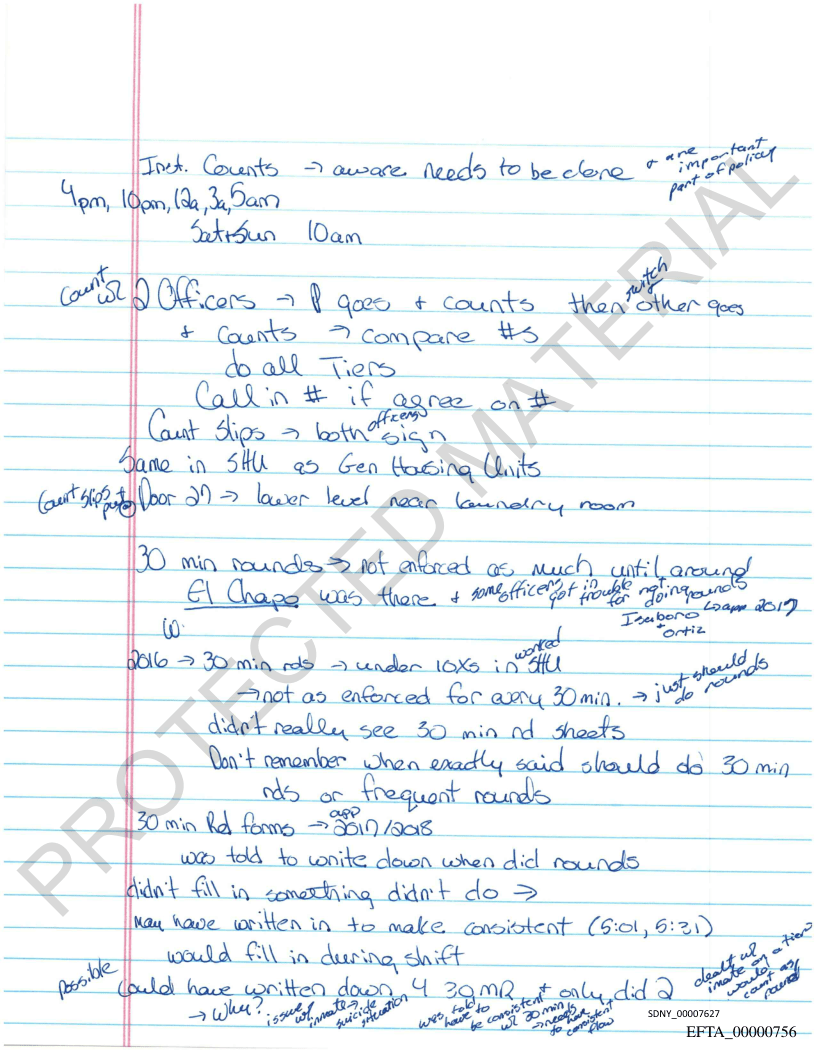 Inst. Counts → aware needs to be done + are important part of policy
4pm, 10pm, 12a, 3a, 5am
Sat+Sun 10am
Count w/ 2 Officers → 1 goes + counts then switch other goes
+ counts → compare #s
do all Tiers
Call in # if agree on #
Count slips → both officers sign
Same in SHU as Gen Housing Units
Count slips Door 27 → lower level near laundry room
30 min rounds → not enforced as much until around
El Chapo was there + some officers got in trouble for not doing rounds
Isuboro + Ortiz
↳ app 2017
W
2016 → 30 min rds → under 10Xs in worked SHU
→ not as enforced for every 30 min. → just should do rounds
didn't really see 30 min rd sheets
Don't remember when exactly said should do 30 min
rds or frequent rounds
30 min Rd forms → app 2017/2018
was told to write down when did rounds
didn't fill in something didn't do →
may have written in to make consistent (5:01, 5:31)
would fill in during shift
possible
Could have written down 4 30 MR + only did 2
dealt w/ inmate on a tier would count as round
→ Why? issue w/ inmate → suicide situation
was told have to be consistent w/ 30 mins → needs to have consistent flow
PROTECTED MATERIAL
SDNY_00007627
EFTA_00000756